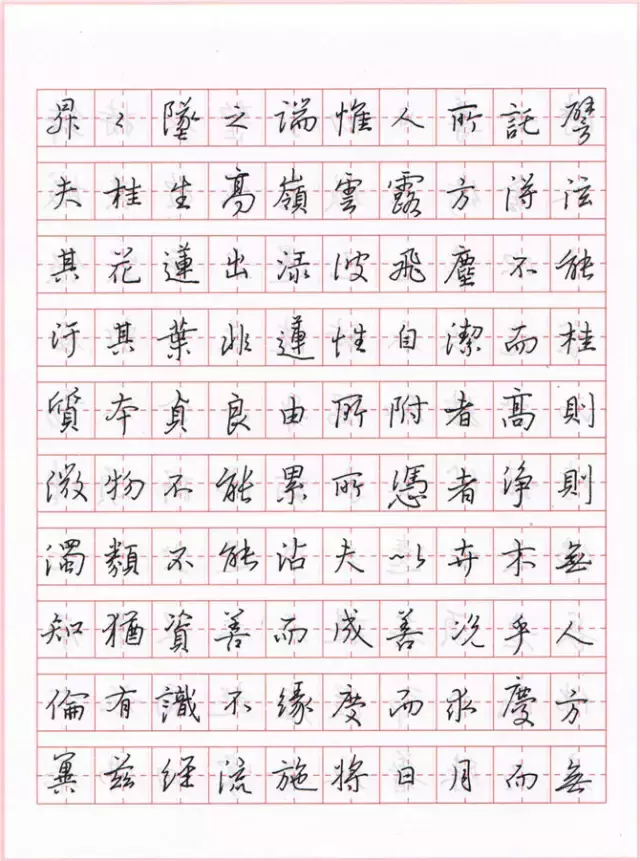 昇々墜之端惟人所託譬
夫桂生高嶺雲露方得泫
其花蓮出淥波飛塵不能
汙其葉非蓮性自潔而桂
質本貞良由所附者高則
微物不能累所憑者浄則
濁類不能沾夫以卉木無
知猶資善而成善況乎人
倫有識不緣慶而求慶方
冀茲經流施將日月而無